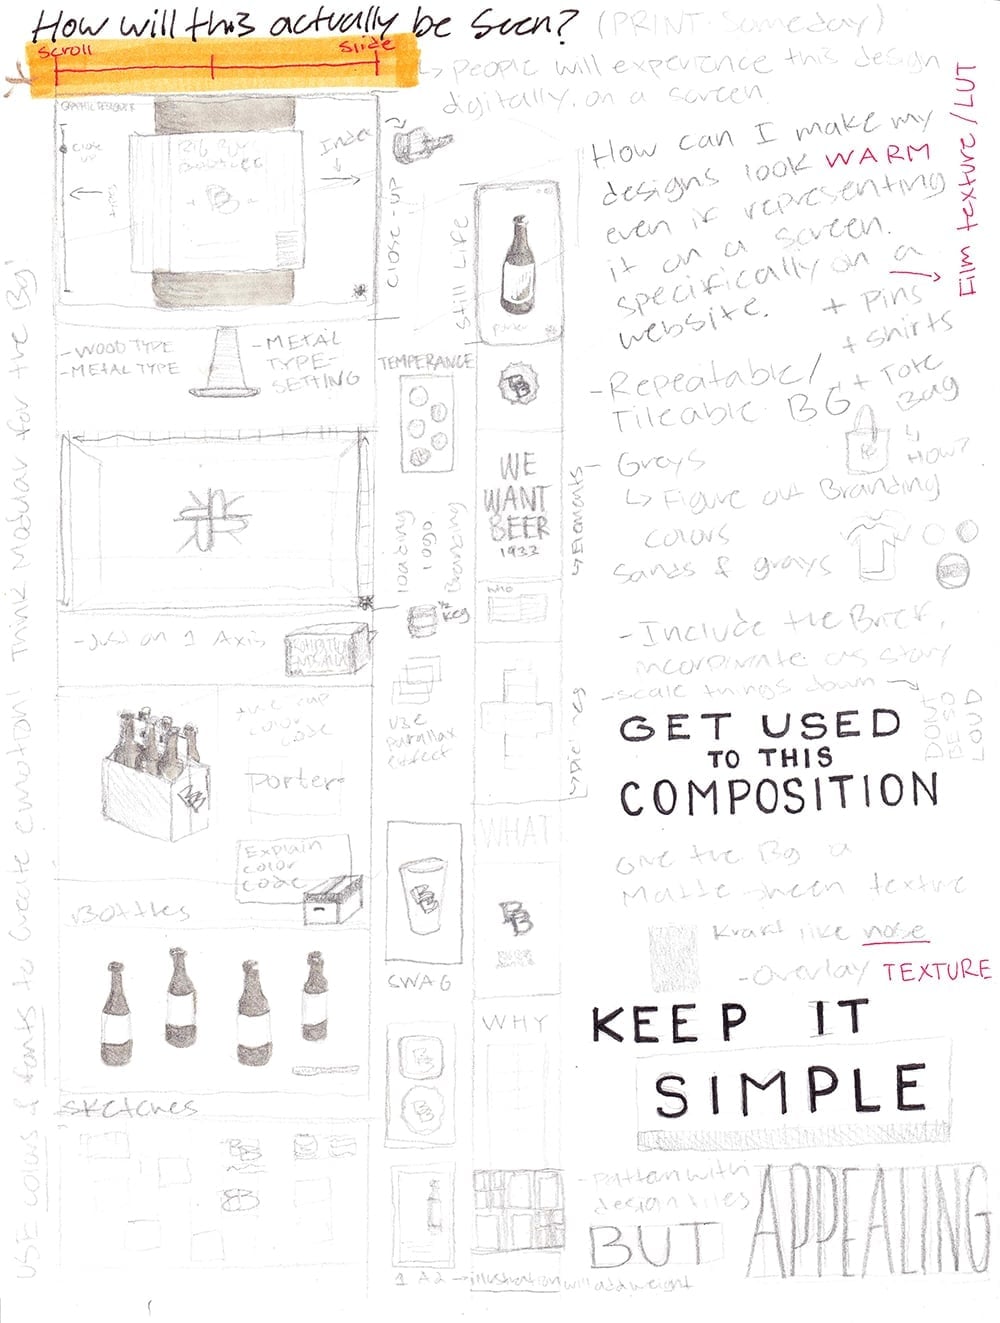 How will this actually be seen? (PRINT: Someday)
scroll
slide
↳ people will experience this design
digitally, on a screen.
GRAPHIC DESIGNER
CLOSE UP
Index
CLOSE-UP
Still Life
How can I make my
designs look WARM
even if representing
it on a screen.
specifically on a
website.
Film texture/LUT
+ Pins
+ shirts
+ Tote
Bag
↳ HOW?
- WOOD TYPE
- METAL TYPE
- METAL
TYPE-
SETTING
TEMPERANCE
porter
BB
WE
WANT
BEER
1933
↳ Elements
- Repeatable/
Tileable BG
- Greys
↳ Figure out Branding
colors
Sands & grays
loading
logo
Branding
1/2 Keg
WHO
- Just on 1 Axis
use
parallax
effect
- Include the Brief,
incorporate as story
- scale things down
DONT
BE SO
LOUD
GET USED
TO THIS
COMPOSITION
color
code
porter
Explain
color
code
Bottles
BB
SWAG
WHAT
BB
WHY
Give the Bg a
Matte sheen texture
Kraft like nose
- Overlay TEXTURE
KEEP IT
SIMPLE
sketches
BB
BB
BB
1 A2 → illustration will add weight
- pattern with
design tiles
BUT APPEALING
USE colors & fonts to create emotion! Think Modular for the Bg!